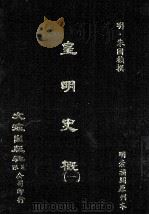 明・朱國禎撰
明崇禎間原刊本
皇明史概(一)
文海出版社有限公司印行